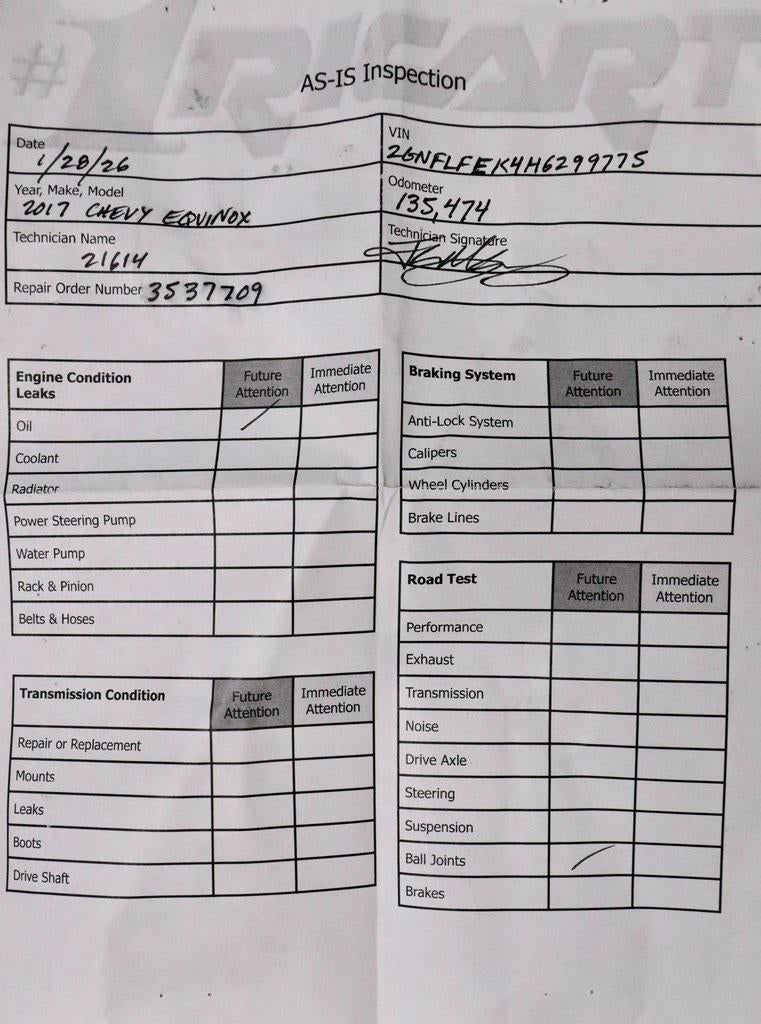 #1 RICART
AS-IS Inspection
Date
1/28/26
VIN
2GNFLFEK4H6299775
Year, Make, Model
2017 CHEVY EQUINOX
Odometer
135,474
Technician Name
21614
Technician Signature
Repair Order Number 3537709
Engine Condition
Leaks
Future
Attention
Immediate
Attention
Oil
Coolant
Radiator
Power Steering Pump
Water Pump
Rack & Pinion
Belts & Hoses
Transmission Condition
Future
Attention
Immediate
Attention
Repair or Replacement
Mounts
Leaks
Boots
Drive Shaft
Braking System
Future
Attention
Immediate
Attention
Anti-Lock System
Calipers
Wheel Cylinders
Brake Lines
Road Test
Future
Attention
Immediate
Attention
Performance
Exhaust
Transmission
Noise
Drive Axle
Steering
Suspension
Ball Joints
Brakes